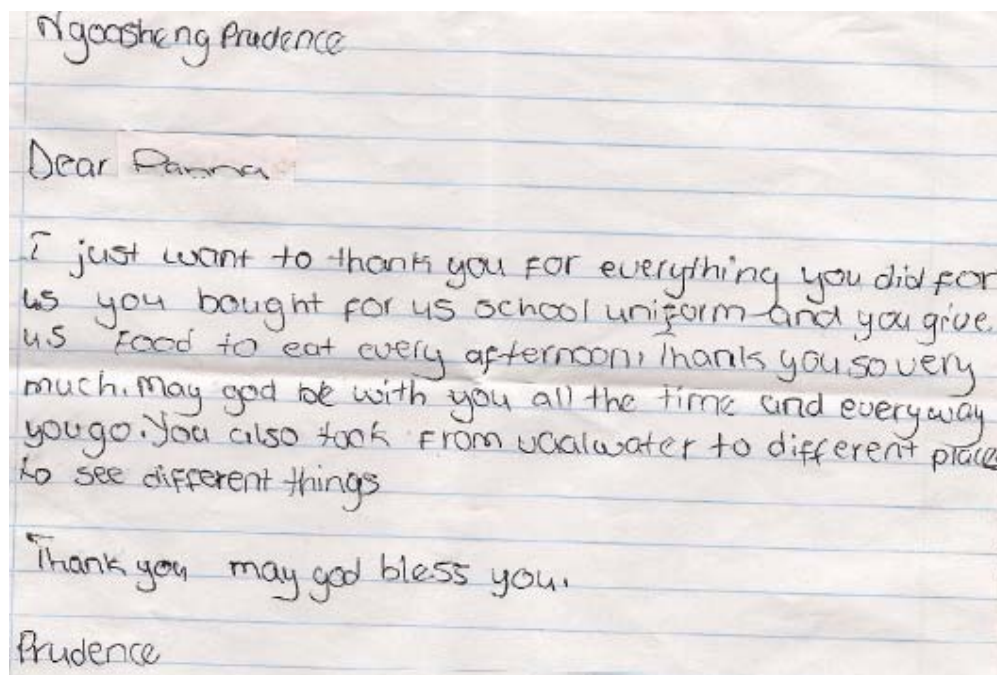 Ngoasheng Prudence
Dear Panna
I just want to thank you for everything you did for
us you bought for us school uniform and you give
us food to eat every afternoon, Thank you so very
much. May god be with you all the time and everyway
you go. You also took from vaalwater to different place
to see different things
Thank you may god bless you.
Prudence